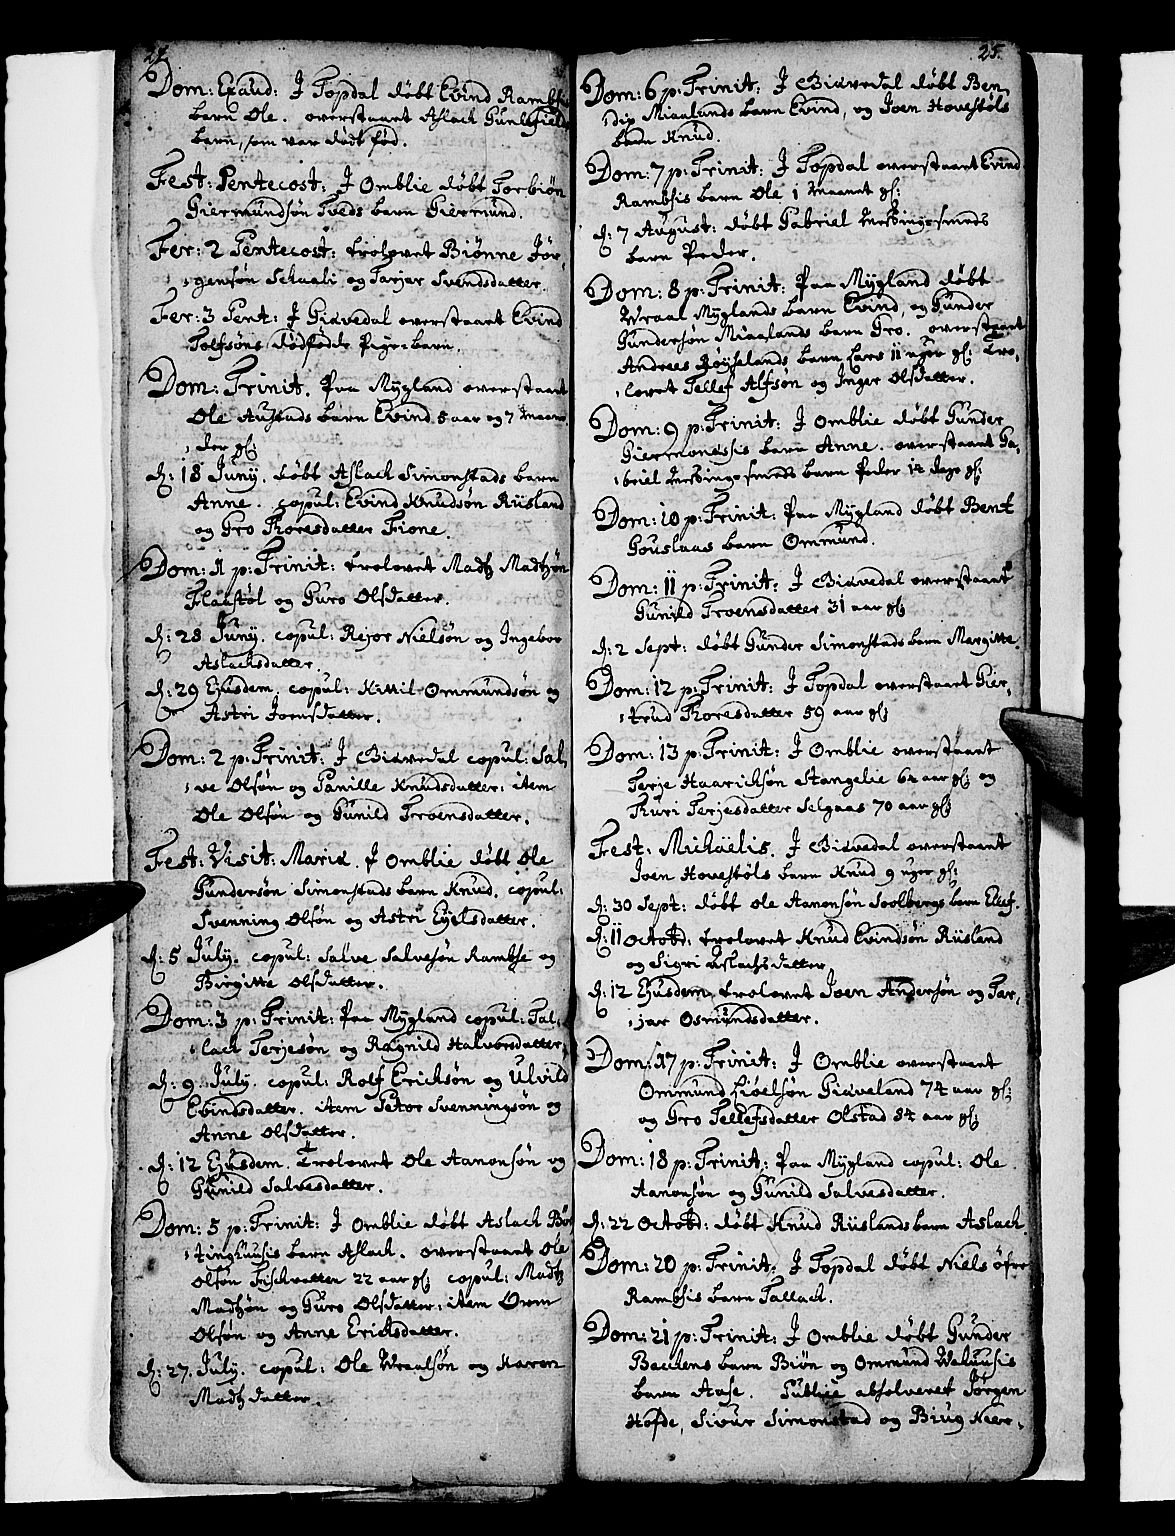 24.
Dom: Exaud: J Topdal døbt Evind Rambsis
barn Ole. overstaaet Aslach
barn, som var dødt fød.
Fest: Pentecost: J Omblie døbt Torbiøn
Giermundsøn Tveds barn Giermund.
Fer: 2 Pentecost: trolovet Biønne Jør-
gensøn Schaali og Tarjar Svendsdatter.
Fer: 3 Pent: J Giævedal overstaaet Evind
Tolfsøns dødfødde Pige-barn.
Dom: Trinit. Paa Mygland overstaaet
Ole Austads barn Evind 5 aar og 7 maane-
der gl:
d: 18 Junij. døbt Aslach Simonstads barn
Anne. copul: Evind Knudsøn Riisland
og Gro Thoresdatter Fione.
Dom: 1 p: Trinit: trolovet Madtz Madtzøn
Flaastøl og Guro Olsdatter.
d: 28 Junij. copul: Rejor Nielsøn og Ingebor
Aslachsdatter.
d: 29 Ejusdem. copul: Kittil Ommundsøn og
Astri Joensdatter.
Dom: 2 p: Trinit: J Giævedal copul: Sal-
ve Olsøn og Panille Knudsdatter: item
Ole Olsøn og Gunild Troensdatter.
Fest: Visit: Mariæ. J Omblie døbt Ole
Gundersøn Simonstads barn Knud. copul:
Svenning Olsøn og Astri Eyelsdatter.
d: 5 July. copul: Salve Salvesøn Rambse og
Birgitte Olsdatter.
Dom: 3 p: Trinit: Paa Mygland copul: Tal-
lach Terjesøn og Ragnild Halvorsdatter.
d: 9 July. copul: Rolf Erichsøn og Ulvild
Evindsdatter. item Petor Svenningsøn og
Anne Olsdatter.
d: 12 Ejusdem. Trolovet Ole Aanonsøn og
Gunild Salvesdatter.
Dom: 5 p: Trinit: J Omblie døbt Aslach Bør-
tinghuusis barn Aslach. overstaaet Ole
Olsøn Fischvatten 22 aar gl: copul: Madtz
Madtzøn og Guro Olsdatter: item Orm
Olsøn og Anne Erichsdatter.
d: 27. July. copul: Ole Wraalsøn og Karen
Madtzdatter.
25.
Dom: 6 p: Trinit: J Giævedal døbt Ben-
dix Miaalands barn Evind, og Joen Hovestøls
barn Knud.
Dom: 7 p: Trinit: J Topdal overstaaet Evind
Rambsis barn Ole 1 maanet gl:
d: 7 August: døbt Gabriel Messing-smeds
barn Peder.
Dom: 8 p: Trinit: Paa Mygland døbt
Wraal Myglands barn Evind, og Gunder
Gundersøn Miaalands barn Gro. overstaaet
Andreas Røyselands barn Lars 11 uger gl: Tro-
lovet Tellef Alfsøn og Inger Olsdatter.
Dom: 9 p: Trinit: J Omblie døbt Gunder
barn Anne. overstaaet Ga-
briel Messing-smeds barn Peder 14 dage gl:
Dom: 10 p: Trinit: Paa Mygland døbt Bent
Gouslaas barn Ommund.
Dom: 11 p: Trinit: J Giævedal overstaaet
Gunild Troensdatter 31 aar gl:
d: 2 Sept: døbt Gunder Simonstads barn Margitte.
Dom: 12 p: Trinit: J Topdal overstaaet Gier-
trud Thoresdatter 59 aar gl:
Dom: 13 p: Trinit: J Omblie overstaaet
Terje Haarichsøn Stangelie 62 aar gl: og
Thuri Terjesdatter Selgaas 70 aar gl:
Fest: Michaëlis. J Giævedal overstaaet
Joen Hovestøls barn Knud 9 uger gl:
d: 30 Sept: døbt Ole Aanonsøn Soelbergs barn Ellef.
d: 11 Octobr: trolovet Knud Evindsøn Riisland
og Sigri Aslachsdatter
d: 12 Ejusdem trolovet Joen Andersøn og Tar-
jar Osmundsdatter.
Dom: 17 p: Trinit: J Omblie overstaaet
Ommund Liøelsøn Giæveland 74 aar gl:
og Gro Tellefsdatter Olstad 84 aar gl:
Dom: 18 p: Trinit: Paa Mygland copul: Ole
Aanonsøn og Gunild Salvesdatter.
d: 22 Octobr: døbt Knud Riislands barn Aslach.
Dom: 20 p: Trinit: J Topdal døbt Niels øfre
Rambsis barn Tallach.
Dom: 21 p: Trinit: J Omblie døbt Gunder
Bechens barn Biøn og Ommund
barn Aase. Publicè absolveret Jørgen
Hofde, Sivur Simonstad og Biug Neer-